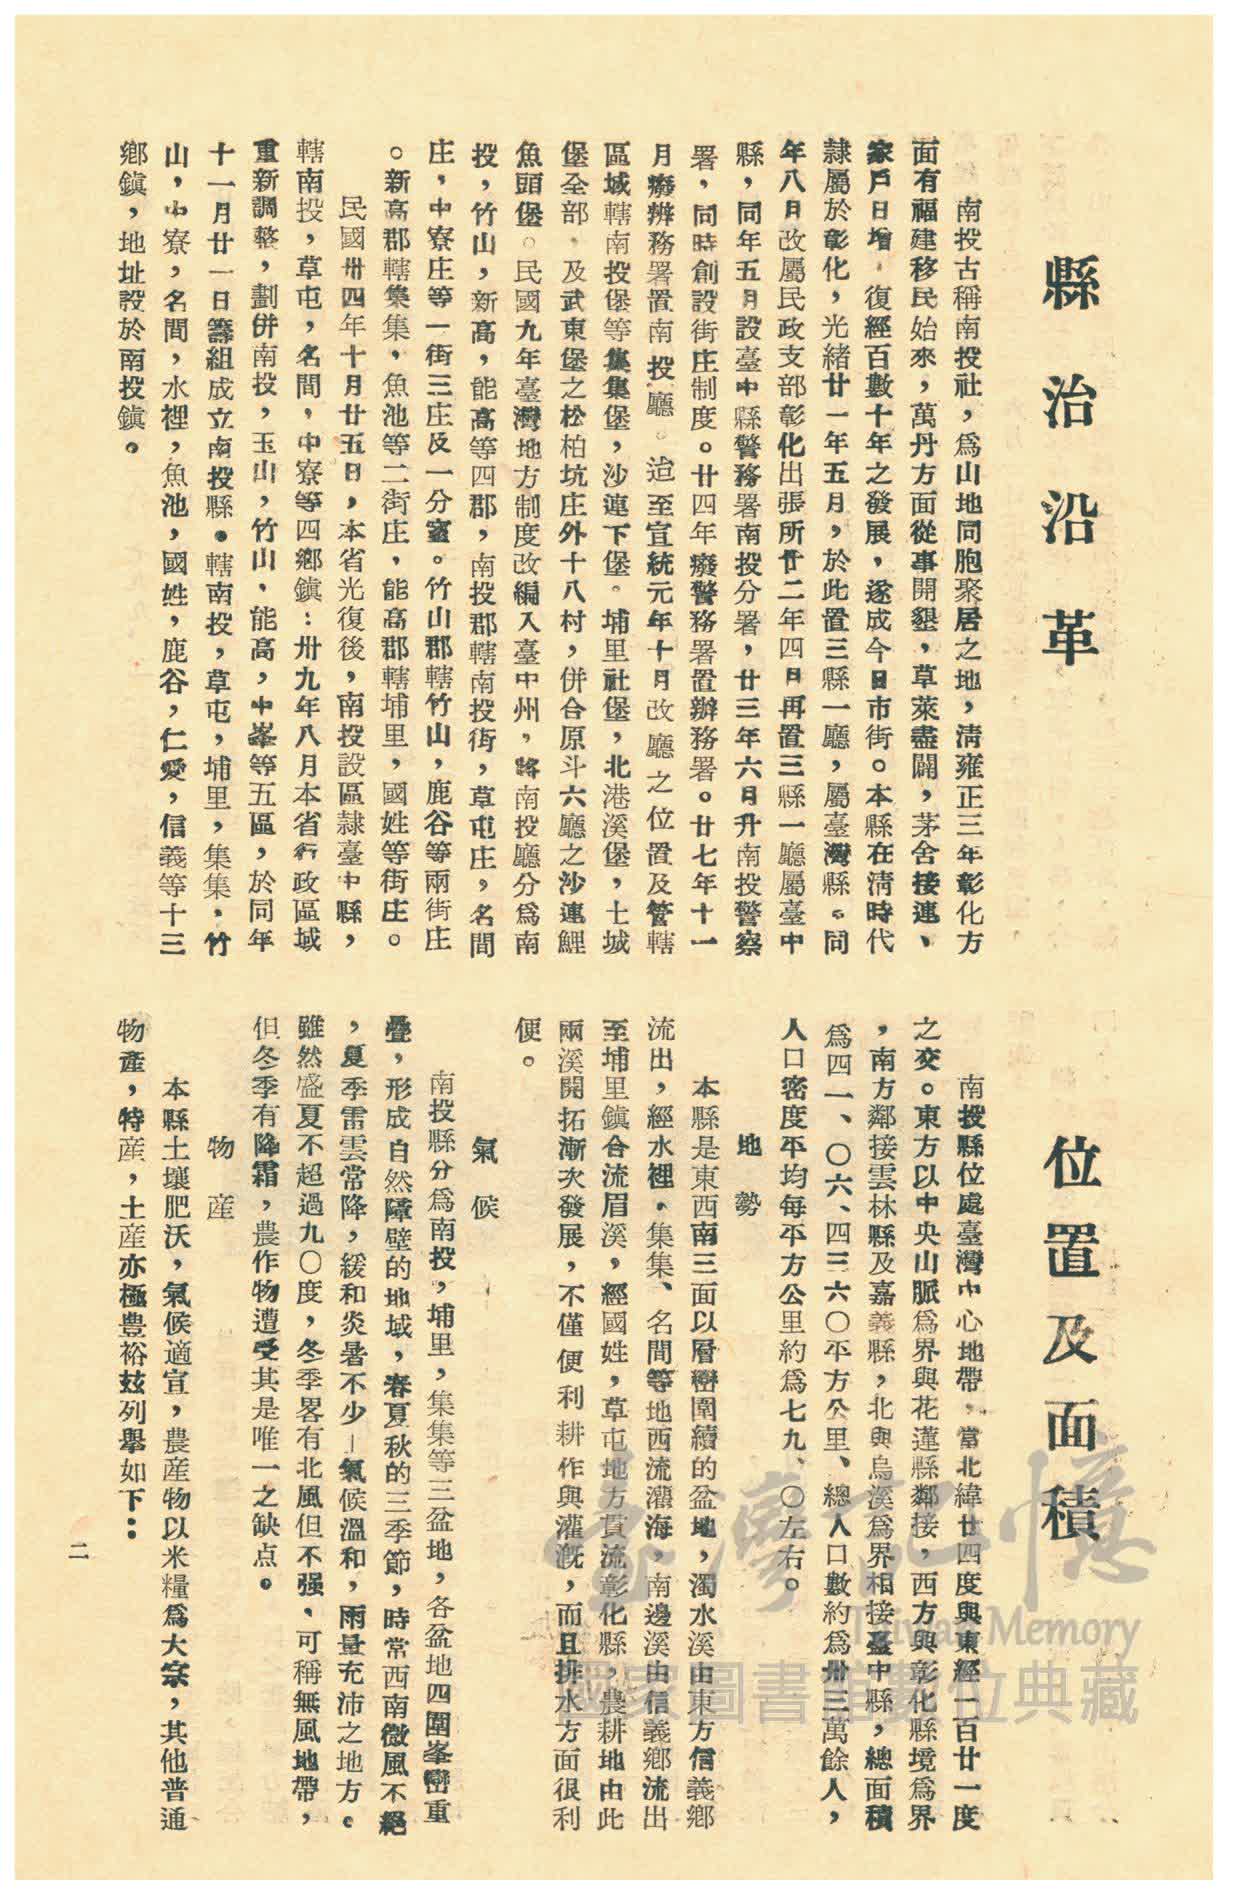 縣治沿革
南投古稱南投社，爲山地同胞聚居之地，淸雍正三年彰化方
面有福建移民始來，萬丹方面從事開墾，草萊盡闢，茅舍接連、
家戶日增，復經百數十年之發展，遂成今日市街。本縣在淸時代
隷屬於彰化，光緒廿一年五月，於此置三縣一廳，屬臺灣縣。同
年八月改屬民政支部彰化出張所廿二年四日再置三縣一廳屬臺中
縣，同年五月設臺中縣警務署南投分署，廿三年六月升南投警察
署，同時創設街庄制度。廿四年癈警務署置辦務署。廿七年十一
月癈辦務署置南投廳。迨至宣統元年十月改廳之位置及管轄
區域轄南投堡等集集堡，沙連下堡。埔里社堡，北港溪堡，士城
堡全部，及武東堡之松柏坑庄外十八村，併合原斗六廳之沙連鯉
魚頭堡。民國九年臺灣地方制度改編入臺中州，將南投廳分爲南
投，竹山，新高，能高等四郡，南投郡轄南投街，草屯庄，名間
庄，中寮庄等一街三庄及一分室。竹山郡轄竹山，鹿谷等兩街庄
。新高郡轄集集，魚池等二街庄，能高郡轄埔里，國姓等街庄。
民國卅四年十月廿五日，本省光復後，南投設區隷臺中縣，
轄南投，草屯，名間，中寮等四鄉鎭：卅九年八月本省行政區域
重新調整，劃併南投，玉山，竹山，能高，中峯等五區，於同年
十一月廿一日籌組成立南投縣。轄南投，草屯，埔里，集集，竹
山，中寮，名間，水裡，魚池，國姓，鹿谷，仁愛，信義等十三
鄉鎭，地址設於南投鎭。
位置及面積
南投縣位處臺灣中心地帶，當北緯廿四度與東經一百廿一度
之交。東方以中央山脈爲界與花蓮縣鄰接，西方與彰化縣境爲界
，南方鄰接雲林縣及嘉義縣，北與烏溪爲界相接臺中縣，總面積
爲四一、〇六、四三六〇平方公里、總人口數約爲卅三萬餘人，
人口密度平均每平方公里約爲七九、〇左右。
地勢
本縣是東西南三面以層巒圍續的盆地，濁水溪由東方信義鄉
流出，經水裡，集集、名間等地西流灌海，南邊溪由信義鄉流出
至埔里鎭合流眉溪，經國姓，草屯地方貫流彰化縣，農耕地由此
兩溪開拓漸次發展，不僅便利耕作與灌漑，而且排水方面很利
便。
氣候
南投縣分爲南投，埔里，集集等三盆地，各盆地四圍峯巒重
疊，形成自然障壁的地域，春夏秋的三季節，時常西南微風不絕
，夏季雷雲常降，緩和炎暑不少—氣候溫和，雨量充沛之地方。
雖然盛夏不超過九〇度，冬季畧有北風但不强，可稱無風地帶，
但冬季有降霜，農作物遭受其是唯一之缺点。
物産
本縣土壤肥沃，氣候適宜，農産物以米糧爲大宗，其他普通
物産，特産，土産亦極豊裕玆列舉如下：
二
臺灣記憶
Taiwan Memory
國家圖書館數位典藏